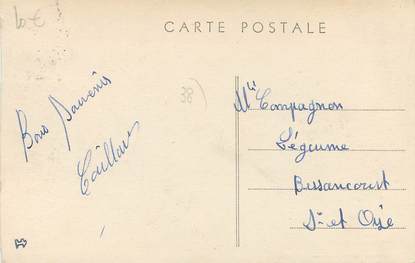 10 €
CARTE POSTALE
38
Bons Souvenirs
Caillau
Mlle Compagnon
Légume
Bessancourt
S. et Oise